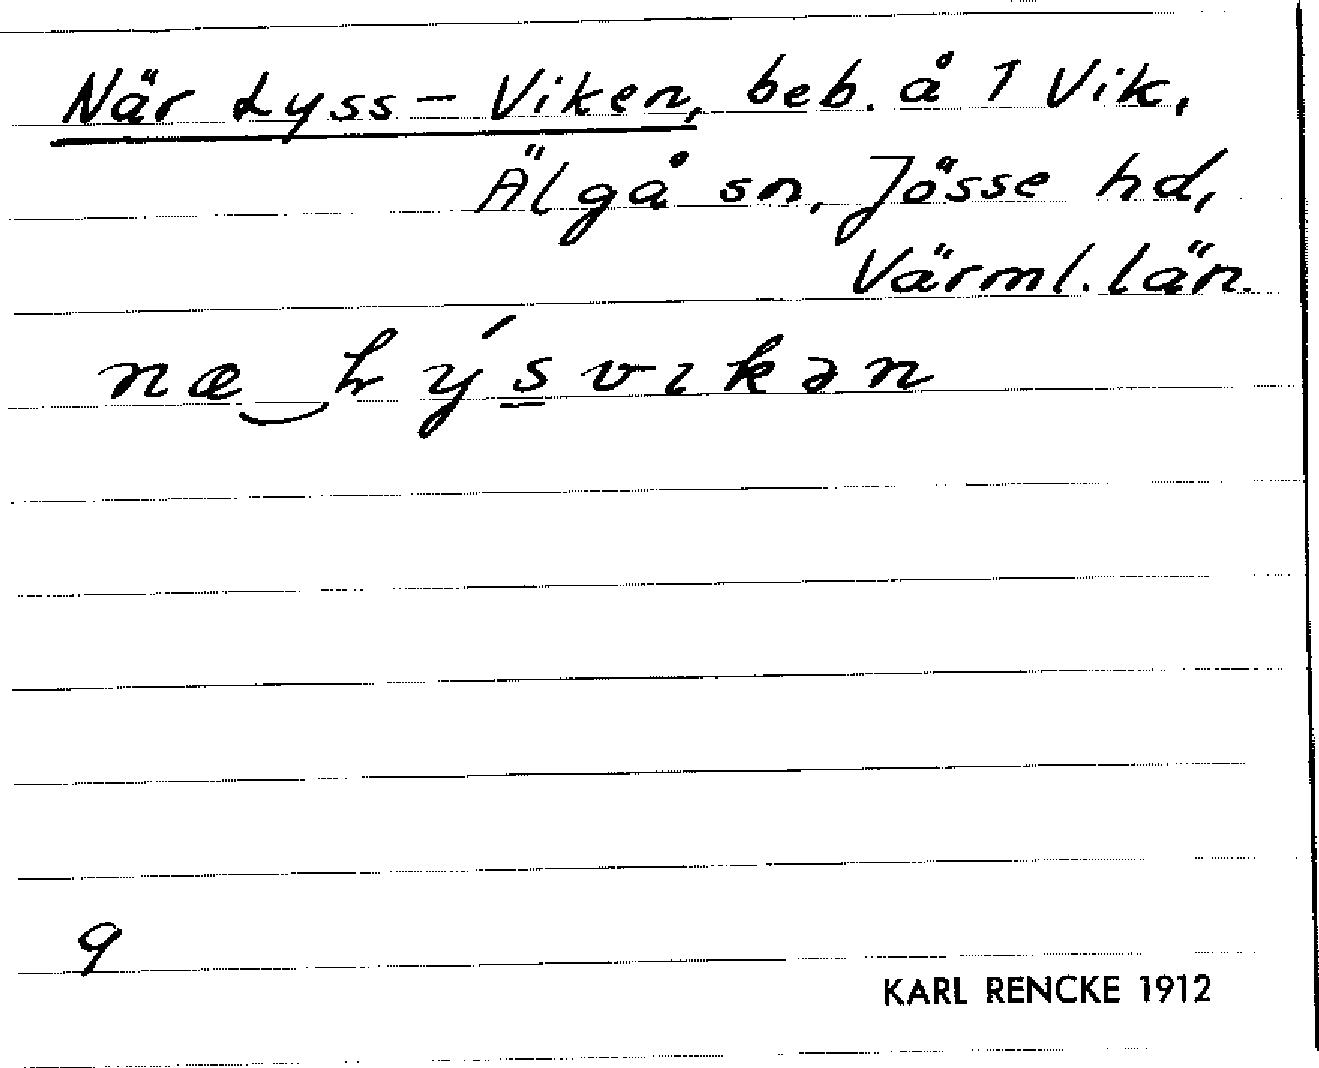 När Lyss-Viken, beb. å 1 Vik,
Älgå sn, Jösse hd,
Värml. län.
næ‿Lýsvıkən
9
KARL RENCKE 1912